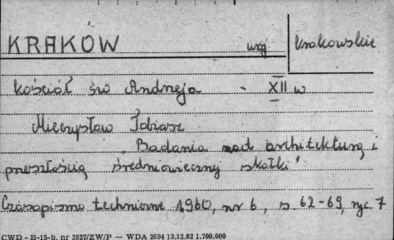 KRAKÓW woj krakowskie
kościół św Andrzeja - XII w
Mieczysław Tobiasz
"Badania nad architekturą i
przeszłością średniowiecznej skałki"
Czasopismo techniczne 1960, nr 6, s 62-69, ryc 7
CWD - B-15-b, nr 2827/ZW/P — WDA 2694 13.12.62 1.700.000